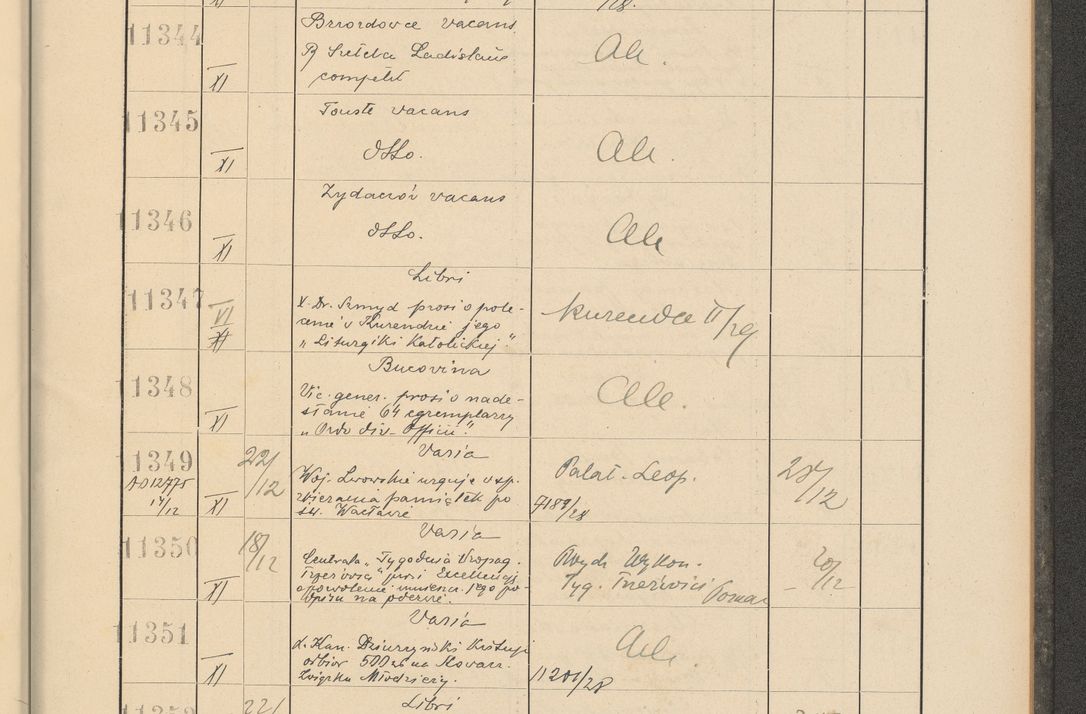 11344
XI
Brzozdowce vacans.
Ladislaus
competit
Aa.
11345
XI
Touste vacans
Otto.
Aa.
11346
XI
Żydaczów vacans
Otto.
Aa
11347
VI
XI
Libri
X. Dr. Szmyd prosi o pole-
cenie w Kurendzie jego
"Liturgiki Katolickiej."
Kurenda II/29
11348
XI
Bucovina
Vic. gener. prosi o nade-
słanie 64 egzemplarzy
"Ordo div. Officii."
Aa.
11349
14/12
XI
22/12
Varia
Woj. Lwowskie urguje w sp.
pamiątek po
św. Wacławie
Palat. Leop.
7189/28
/12
11350
XI
18/12
Varia
Centrala "Tygodnia Propag.
Trzeźwości" prosi Excellencję
o pozwolenie umieszcz. jego po-
na odezwie.
Wykon.
Tyg. Trzeźwości
20/12
11351
XI
Varia
X. Kan. Dziurzyński kwituje
odbiór 500 zł na Stowarz.
Związku Młodzieży.
Aa.
11201/28
22/
Libri